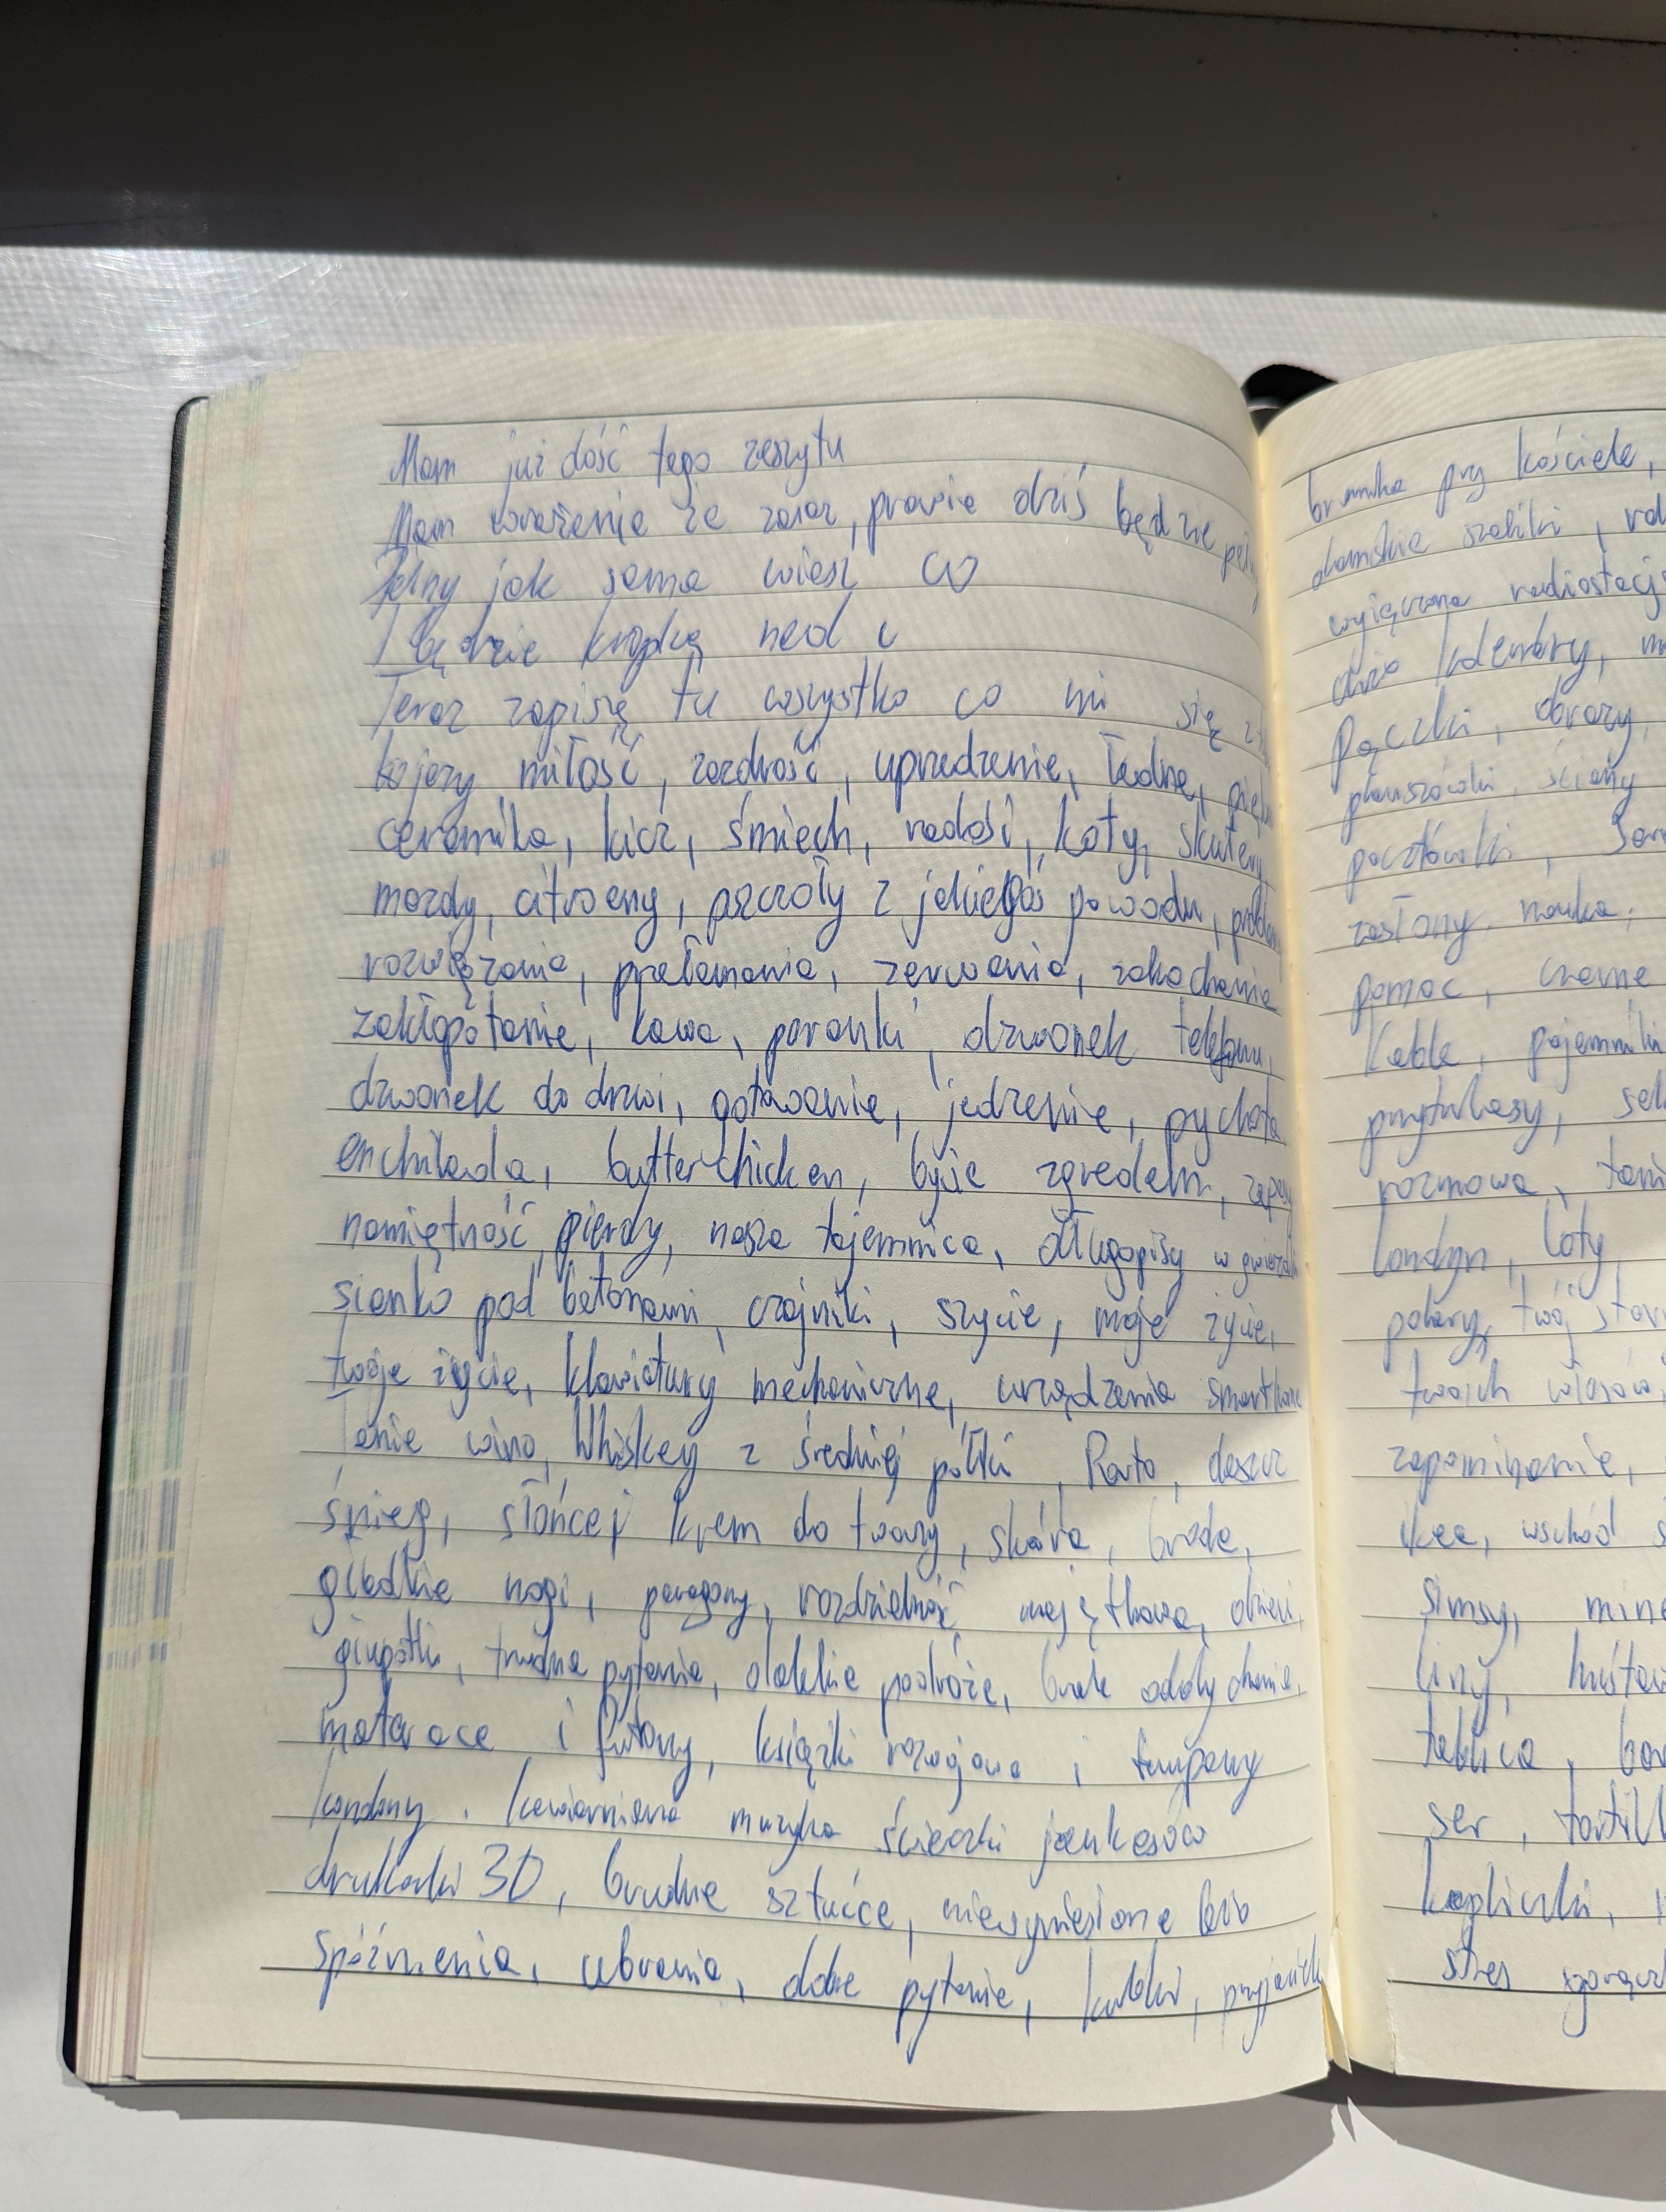 Mam już dość tego zeszytu
Mam wrażenie że zaraz, prawie dziś będzie
Pełny jak sama wiesz co
I będzie kropką nad i
Teraz zapiszę tu wszystko co mi się
kojarzy miłość, zazdrość, uprzedzenie, ładne,
ceramika, kicz, śmiech, radość, koty, skutery
mazdy, citroeny, pszczoły z jakiegoś powodu,
rozwiązania, przełamania, zerwania, zakochania
zakłopotanie, kawa, poranki, dzwonek telefonu,
dzwonek do drzwi, gotowanie, jedzenie, pychota
enchilada, butter chicken, bycie zgredem,
namiętność, pierdy, nasza tajemnica, długopisy w
sianko pod betonami, czajniki, szycie, moje życie,
twoje życie, klawiatury mechaniczne, urządzenia
Tanie wino, Whiskey z średniej półki, Porto, deszcz
śnieg, słońce, krem do twarzy, skóra, broda,
gładkie nogi, paragony, rozdzielność majątkowa, dzieci,
głupotki, trudne pytania, dalekie podróże, brak oddychania,
materace i futony, książki rozwojowe i tampony
kondomy. kawiarniana muzyka ścieżki jamkasów
drukarki 3D, brudne sztućce, niewyniesione bio
spóźnienia, ubrania, dobre pytanie, kubki,
bramka przy kościele,
damskie szaliki,
wyłączona
duże kalendary,
Pączki, obrazy,
pluszówki, ściany
pocztówki,
zasłony, nauka,
pomoc, czarne
Kable, pojemniki
przytulasy,
rozmowa,
Londyn, loty
pokery, twój
twoich włosów,
zapominanie,
ikea, wschód
simsy,
liny,
tablica,
ser,
kapliczki,
stres